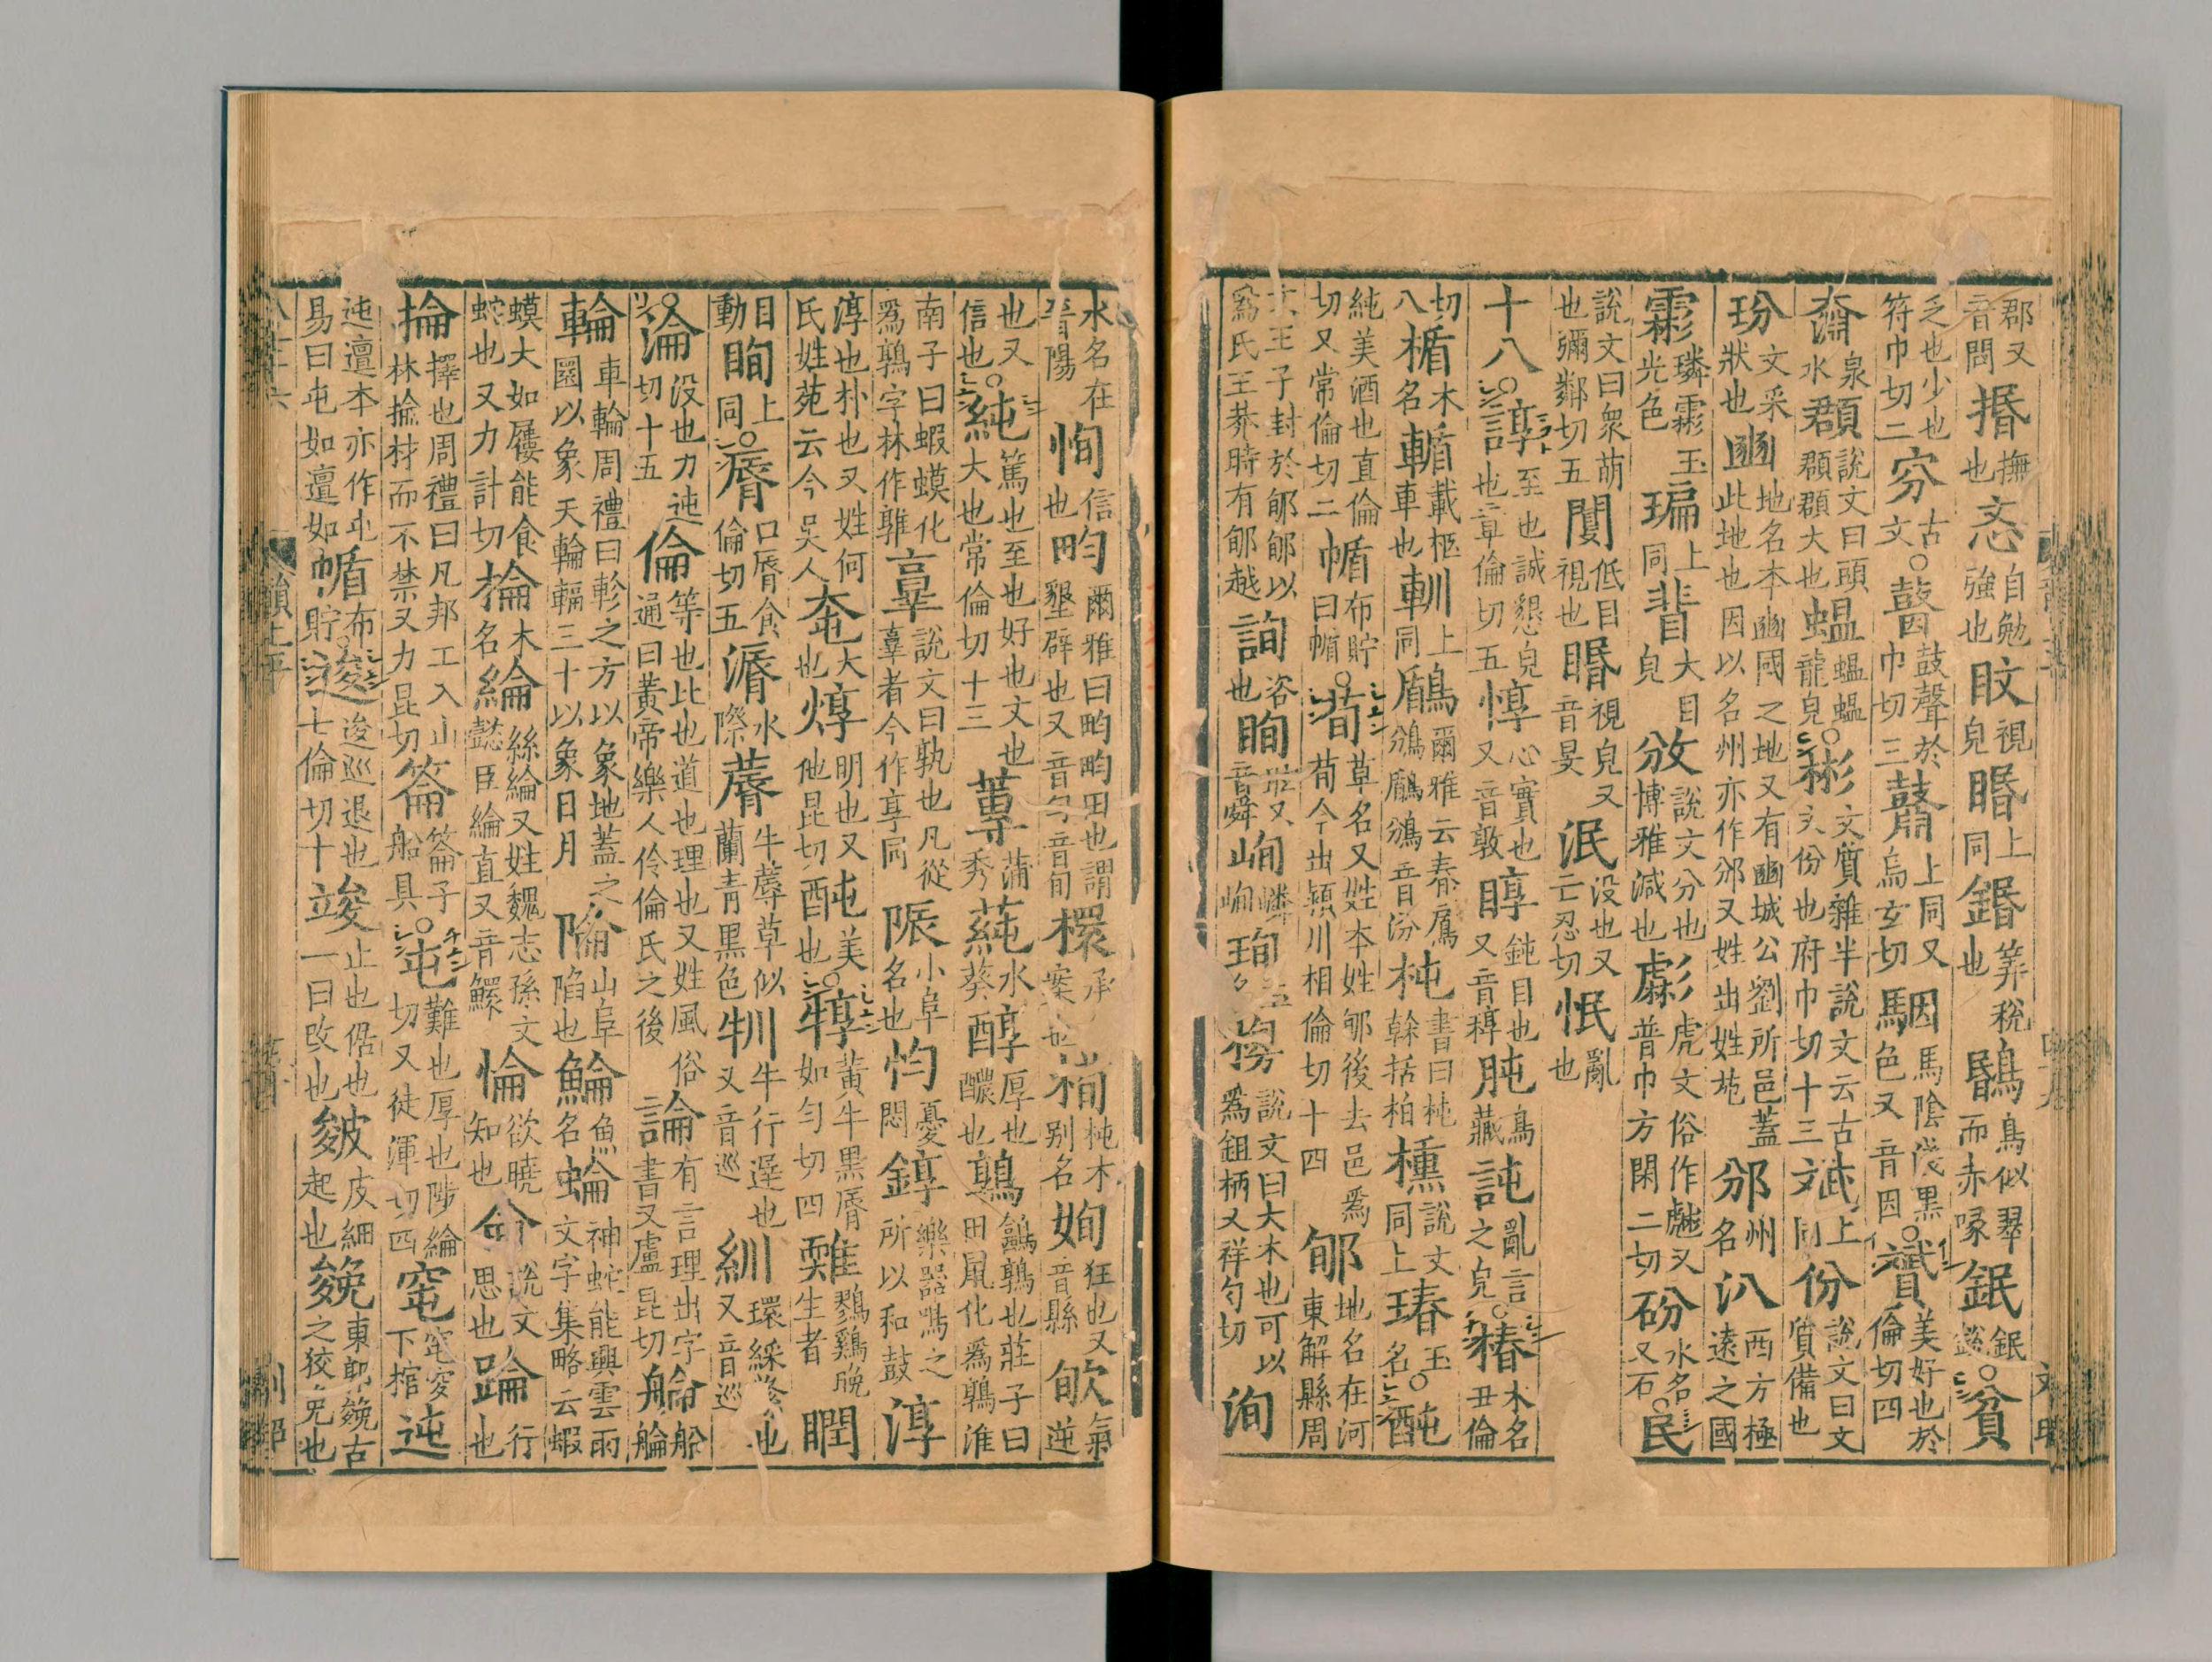 郡又音悶捪撫也忞自勉強也旼視皃睯上同鍲筭稅也鶥鳥似翠而赤喙鈱鈱○貧
乏也少也符巾切二穷古文○鼘鼓聲於巾切三鼘上同又烏玄切駰馬陰淺黑色又音因○贇美好也於倫切四
奫泉水頵說文曰頭頵頵大也蝹蝹蝹龍皃○彬文質雜半說文云古文份也府巾切十三斌上同份說文曰文質備也
玢文采狀也豳地名本豳國之地又有豳城公劉所邑蓋此地也因以名州亦作邠又姓出姓苑邠州名汃西方極遠之國
霦璘霦玉光色㻞上同䀝大目皃攽說文分也博雅減也虨虎文俗作彪又普巾方閑二切砏水名又石○民
說文曰衆萌也彌鄰切五闅低目視也䁕視皃又音旻泯没也又亡忍切怋亂也
十八○諄至也誠懇皃也章倫切五惇心實也又音敦䐃鈍目也又音稕肫鳥藏訰亂言之皃○椿木名丑倫
切八楯木名輴載柩車也䡅上同鶞爾雅云春鳸鳻鶞鳻音汾杶書曰杶榦栝柏櫄說文同上瑃玉名○䣩
純美酒也直倫切又常倫切二㡒布貯曰㡒○荀草名又姓本姓郇後去邑爲荀今出潁川相倫切十四郇地名在河東解縣周
文王子封於郇郇以爲氏王莽時有郇越詢咨也眴又音舜峋嶙峋珣說文曰大木也可以爲鉏柄又祥勻切洵
水名在晉陽恂信也畇爾雅曰畇畇田也謂墾辟也又音勻音旬栒杶木别名姰狂也又音縣䭀氣逆
也又信也○純篤也至也好也文也大也常倫切十三蓴蒲秀蒓水葵醇厚也醲也鶉鷂鶉也莊子曰田鼠化爲鶉淮
南子曰蝦蟇化爲鶉字林作䳕𦎫說文曰孰也凡從𦎫者今作享同陙小阜名也忳憂悶錞樂器鳴之所以和鼓淳
淳也朴也又姓何氏姓苑云今吳人奄大也焞明也又他昆切酏美也○犉黃牛黑脣如勻切四䳰鷚雞晚生者瞤
目動眴上同○脣口脣食倫切五漘水際䔚牛䔚草似蘭青黑色牰牛行遲也又音巡紃環綵絛也又音巡
○淪没也力迍切十五倫等也比也道也理也又姓風俗通曰黃帝樂人伶倫氏之後論有言理出字書又盧昆切䑳船䑳
輪車輪周禮曰軫之方以象地蓋之圓以象天輪輻三十以象日月陯山阜陷也鯩魚名蜦神蛇能興雲雨文字集略云蝦
蟇大如屨能食蛇也又力計切棆木名綸絲綸又姓魏志孫文懿臣綸直又音鰥惀欲曉知也侖說文思也踚行也
掄擇也周禮曰凡邦工入山林掄材而不禁又力昆切䈁䈁子船具○屯難也厚也陟綸切又徒渾切四窀窀穸下棺迍
迍邅本亦作屯易曰屯如邅如㡒布貯○逡逡巡退也七倫切十竣止也倨也一曰改也皴皮細起也㕙東郭㕙古之狡免也